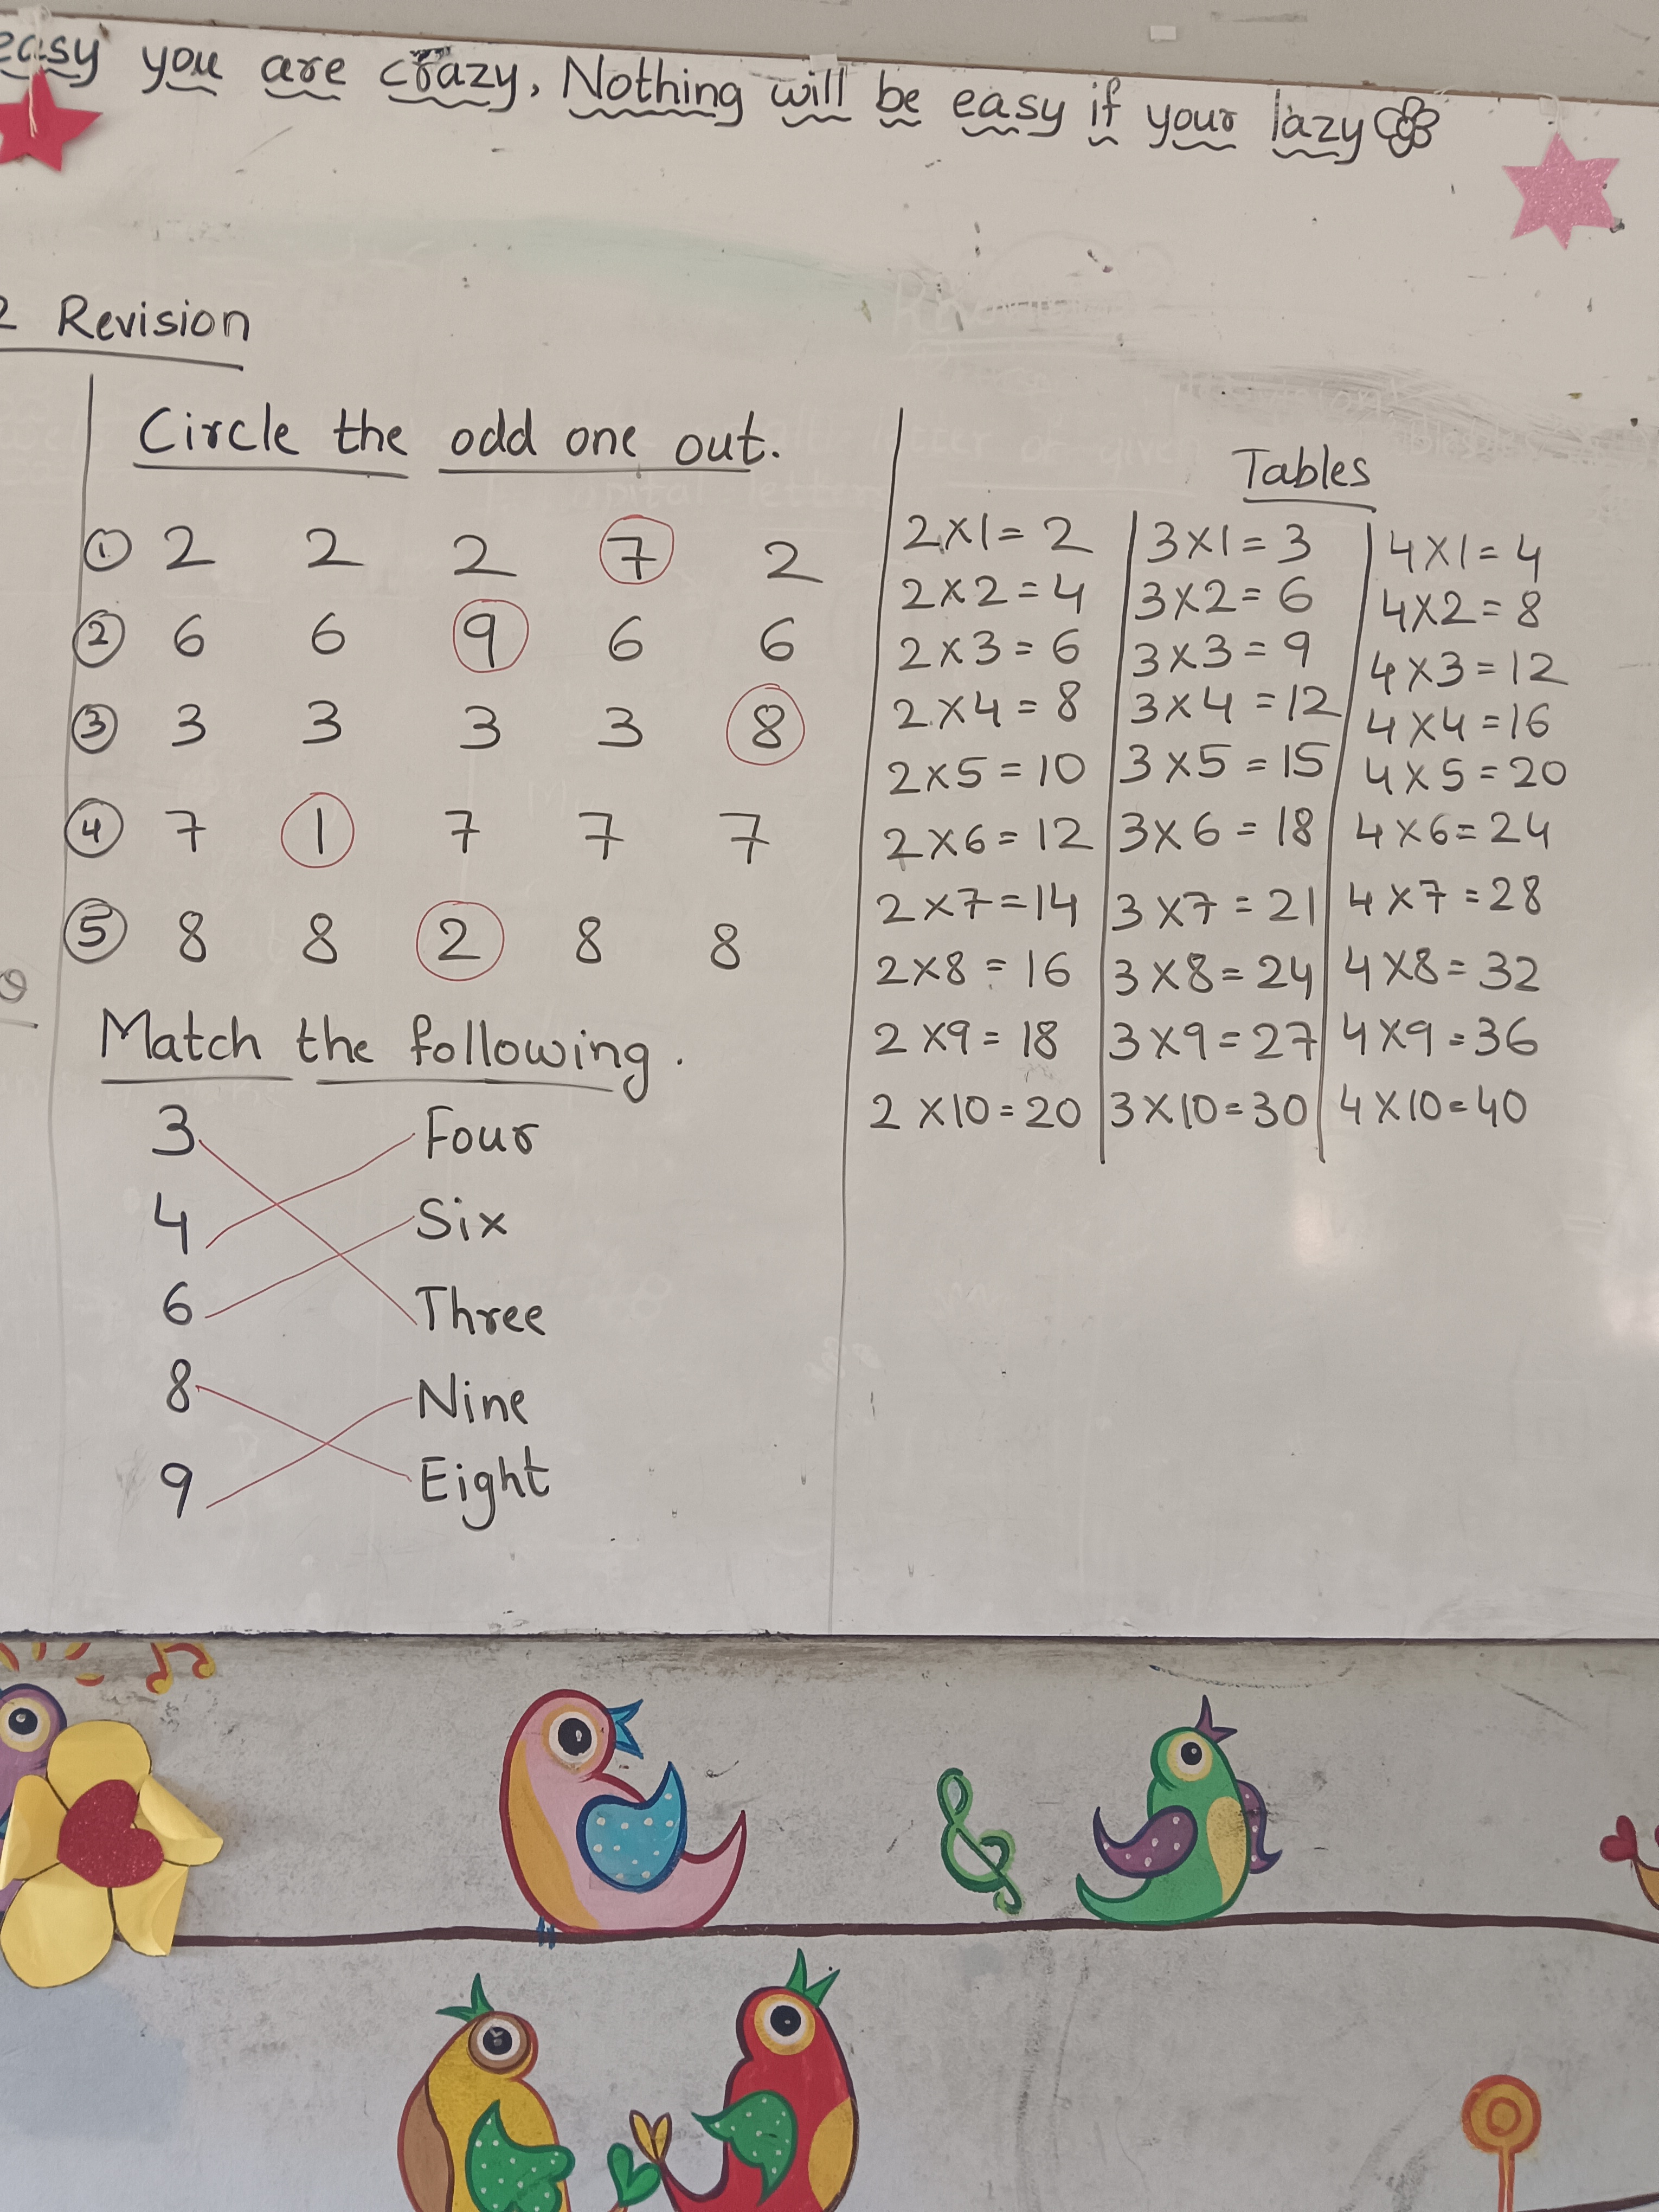 easy you are crazy, Nothing will be easy if your lazy
2 Revision
Circle the odd one out.
① 2 2 2 7 2
② 6 6 9 6 6
③ 3 3 3 3 8
④ 7 1 7 7 7
⑤ 8 8 2 8 8
Match the following.
3 Four
4 Six
6 Three
8 Nine
9 Eight
Tables
2×1=2 3×1=3 4×1=4
2×2=4 3×2=6 4×2=8
2×3=6 3×3=9 4×3=12
2×4=8 3×4=12 4×4=16
2×5=10 3×5=15 4×5=20
2×6=12 3×6=18 4×6=24
2×7=14 3×7=21 4×7=28
2×8=16 3×8=24 4×8=32
2×9=18 3×9=27 4×9=36
2×10=20 3×10=30 4×10=40